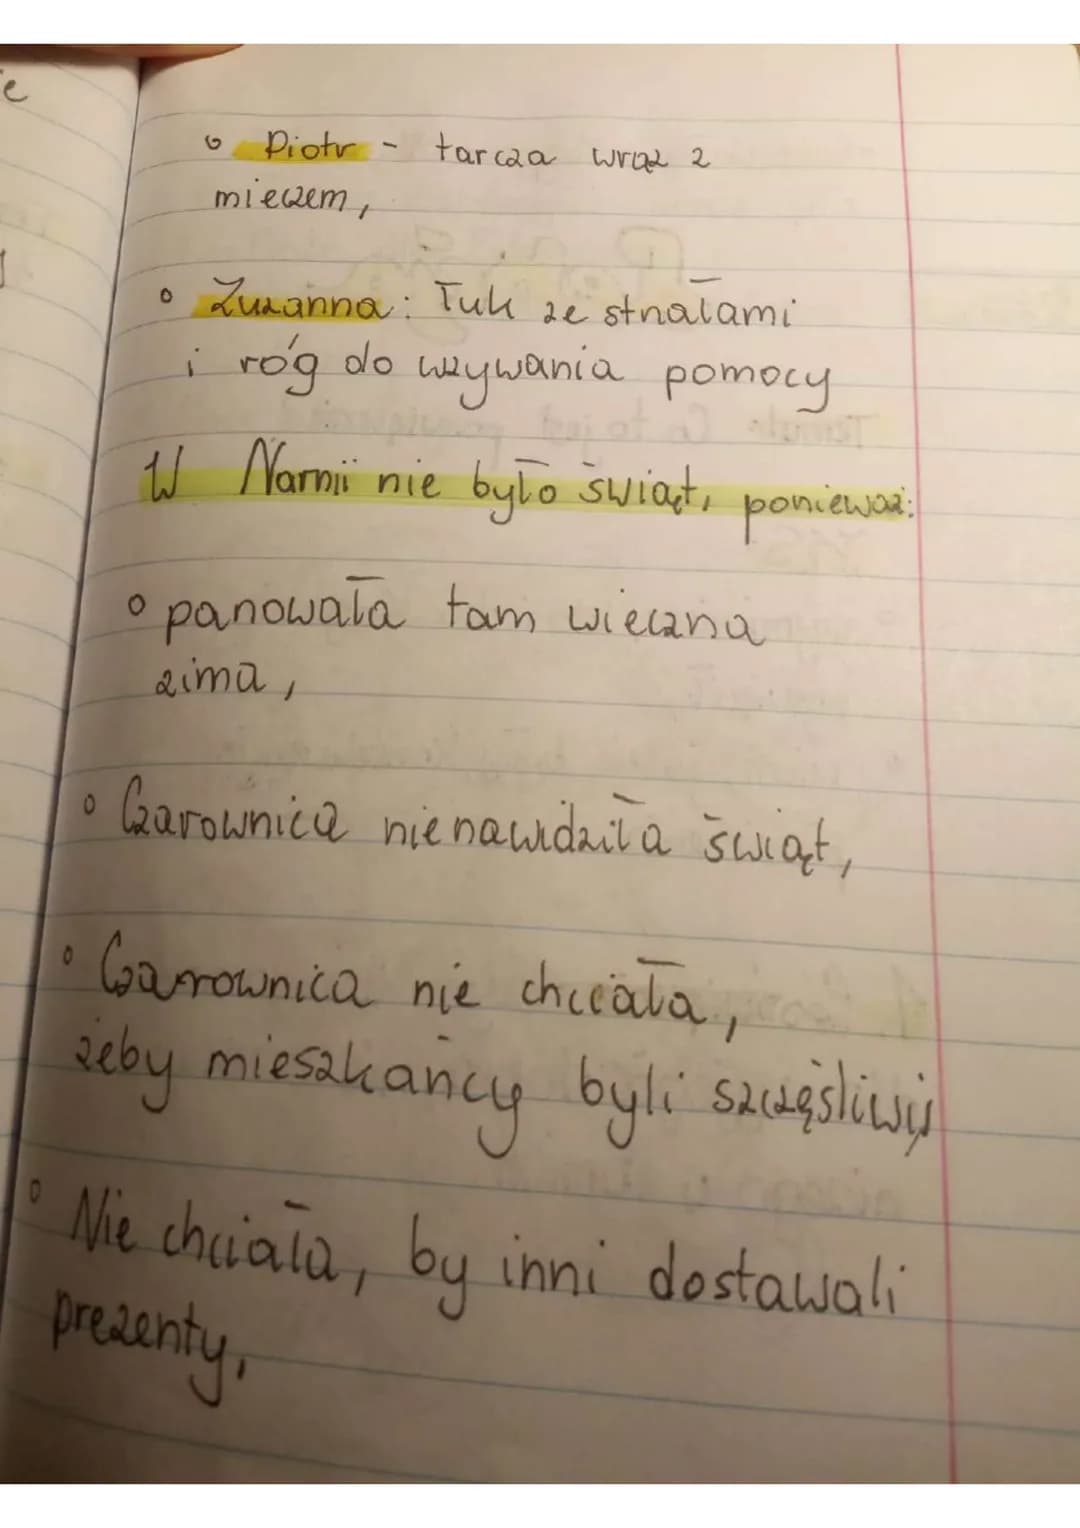 • Piotr - tarcza wraz z
mieczem,
• Zuzanna: Łuk ze strzałami
i róg do wzywania pomocy
W Narnii nie było świąt, ponieważ:
• panowała tam wieczna
zima,
• Czarownica nienawidziła świąt,
• Czarownica nie chciała,
żeby mieszkańcy byli szczęśliwi,
• Nie chciała, by inni dostawali
prezenty,